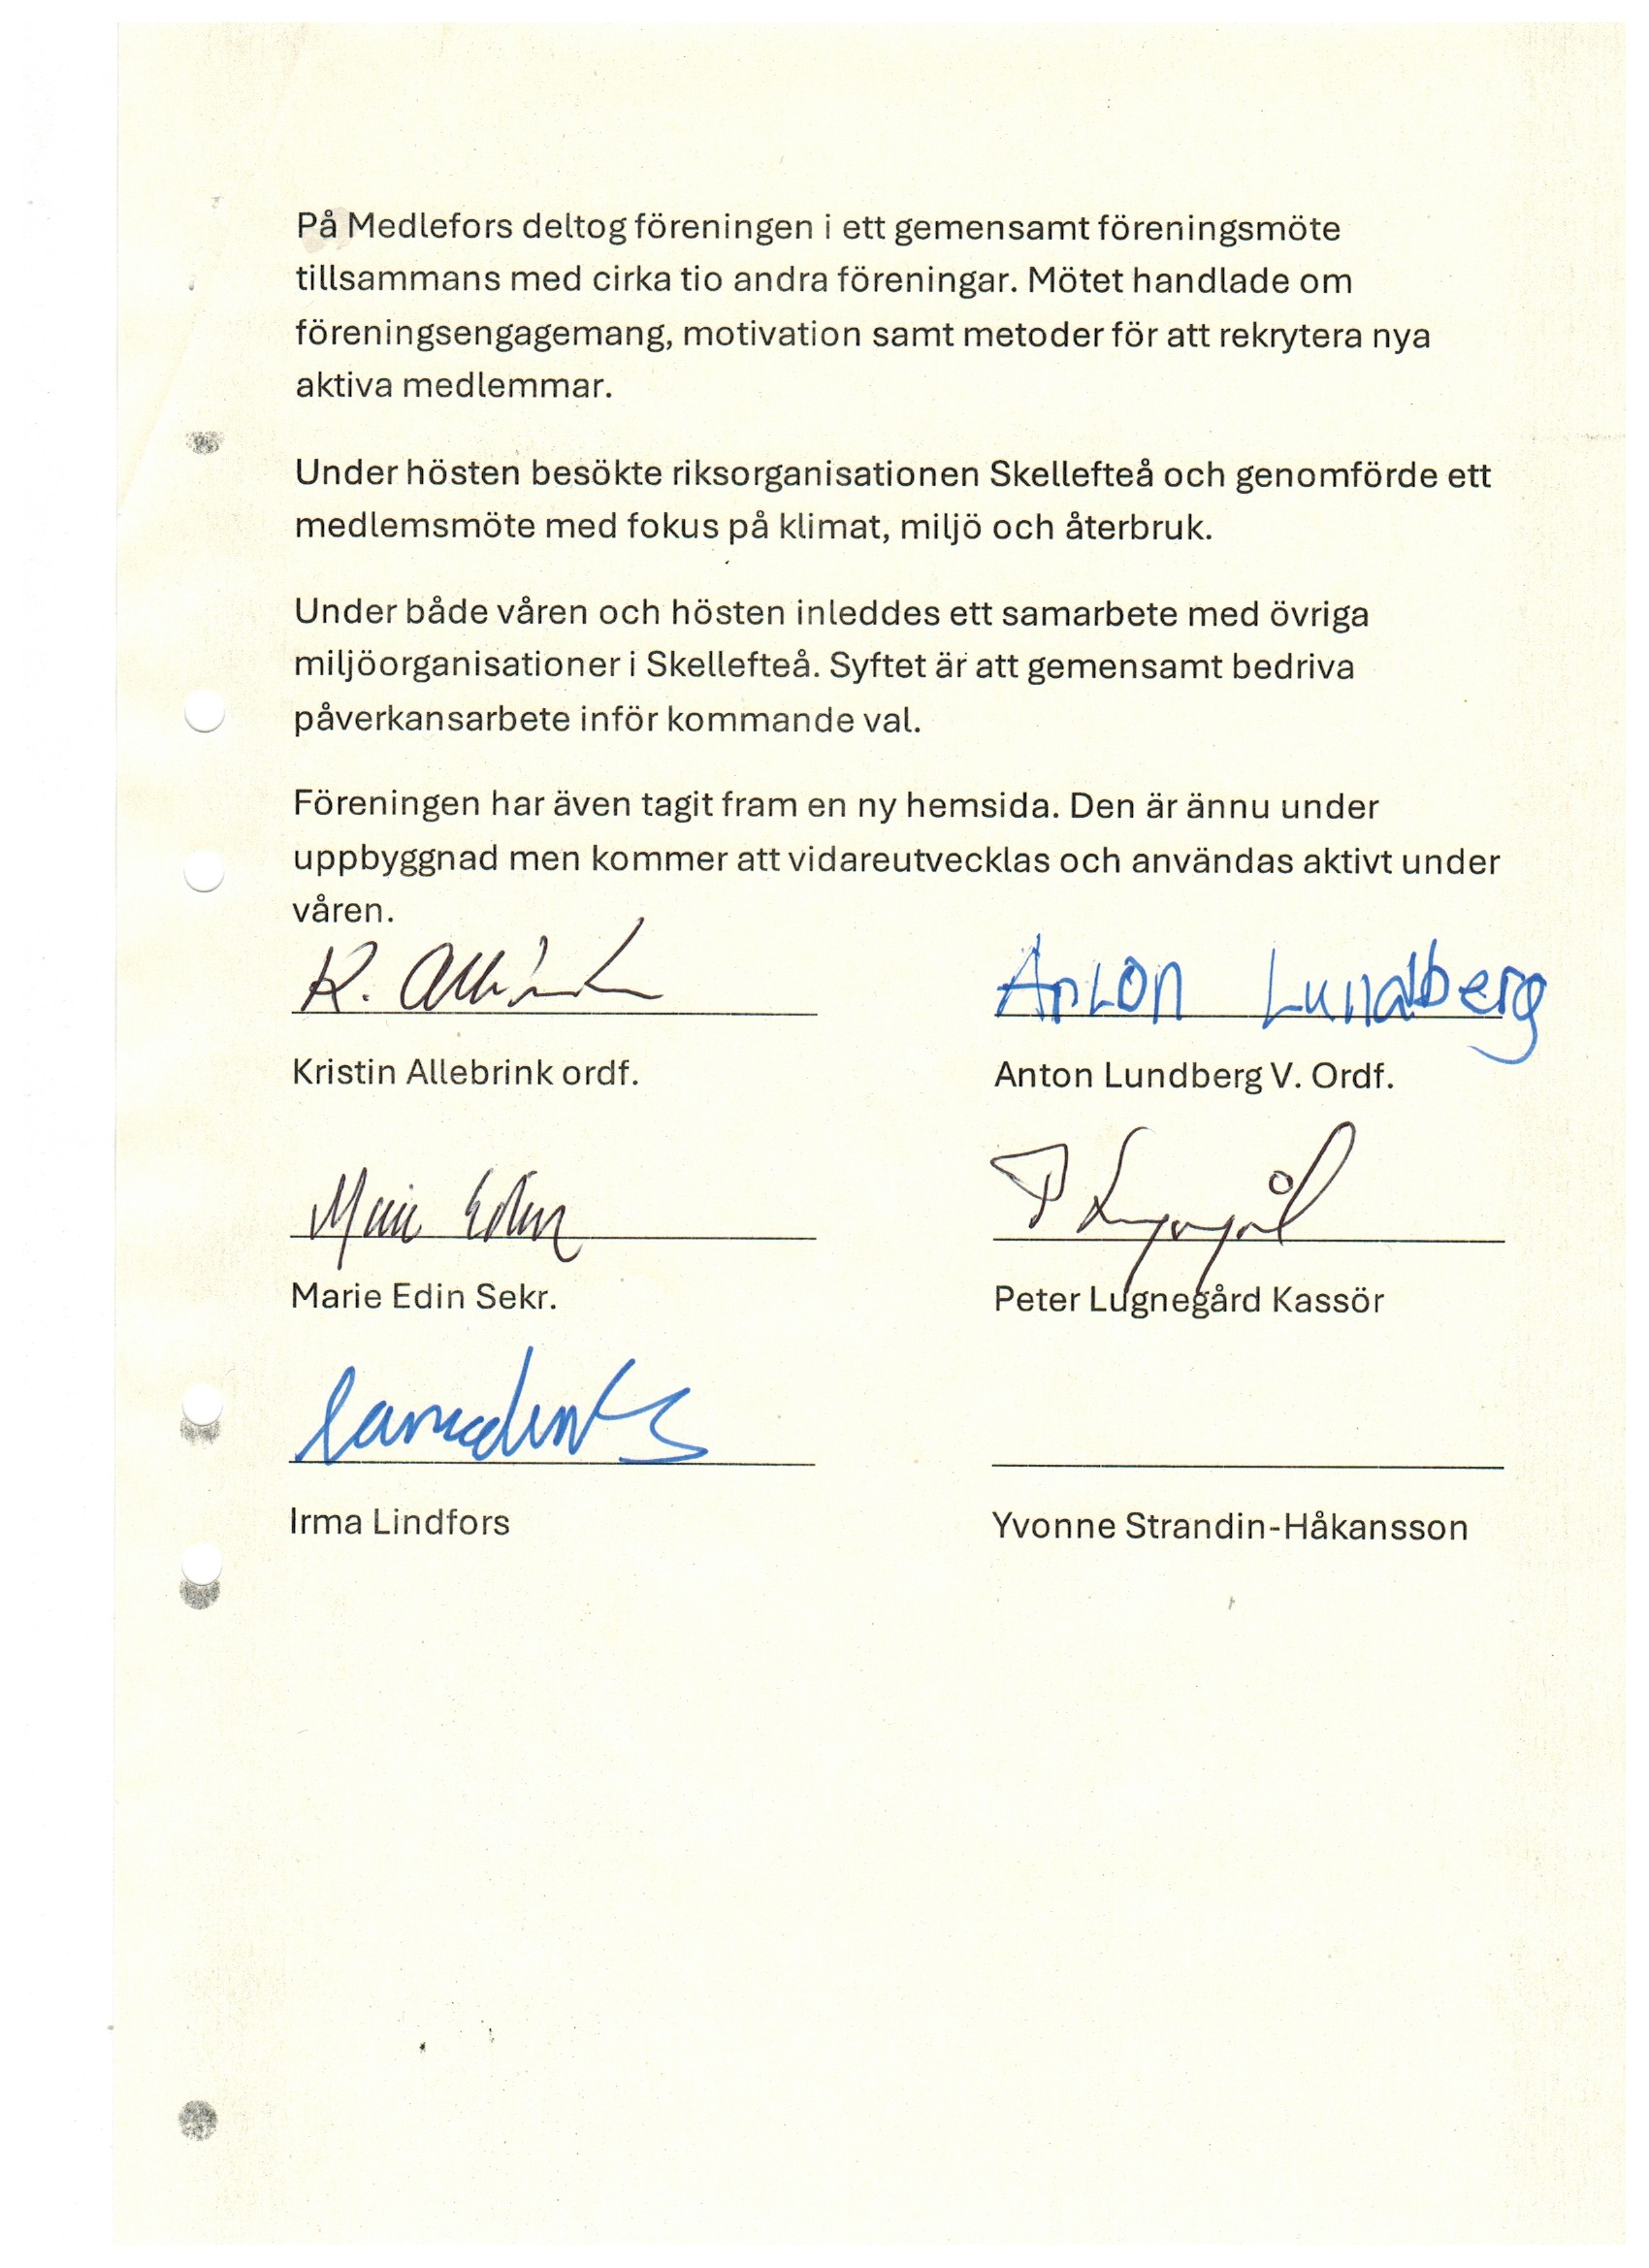 På Medlefors deltog föreningen i ett gemensamt föreningsmöte
tillsammans med cirka tio andra föreningar. Mötet handlade om
föreningsengagemang, motivation samt metoder för att rekrytera nya
aktiva medlemmar.
Under hösten besökte riksorganisationen Skellefteå och genomförde ett
medlemsmöte med fokus på klimat, miljö och återbruk.
Under både våren och hösten inleddes ett samarbete med övriga
miljöorganisationer i Skellefteå. Syftet är att gemensamt bedriva
påverkansarbete inför kommande val.
Föreningen har även tagit fram en ny hemsida. Den är ännu under
uppbyggnad men kommer att vidareutvecklas och användas aktivt under
våren.
K. Anton Lundberg
Kristin Allebrink ordf. Anton Lundberg V. Ordf.
Marie Edin P
Marie Edin Sekr. Peter Lugnegård Kassör
Irma Lindfors Yvonne Strandin-Håkansson